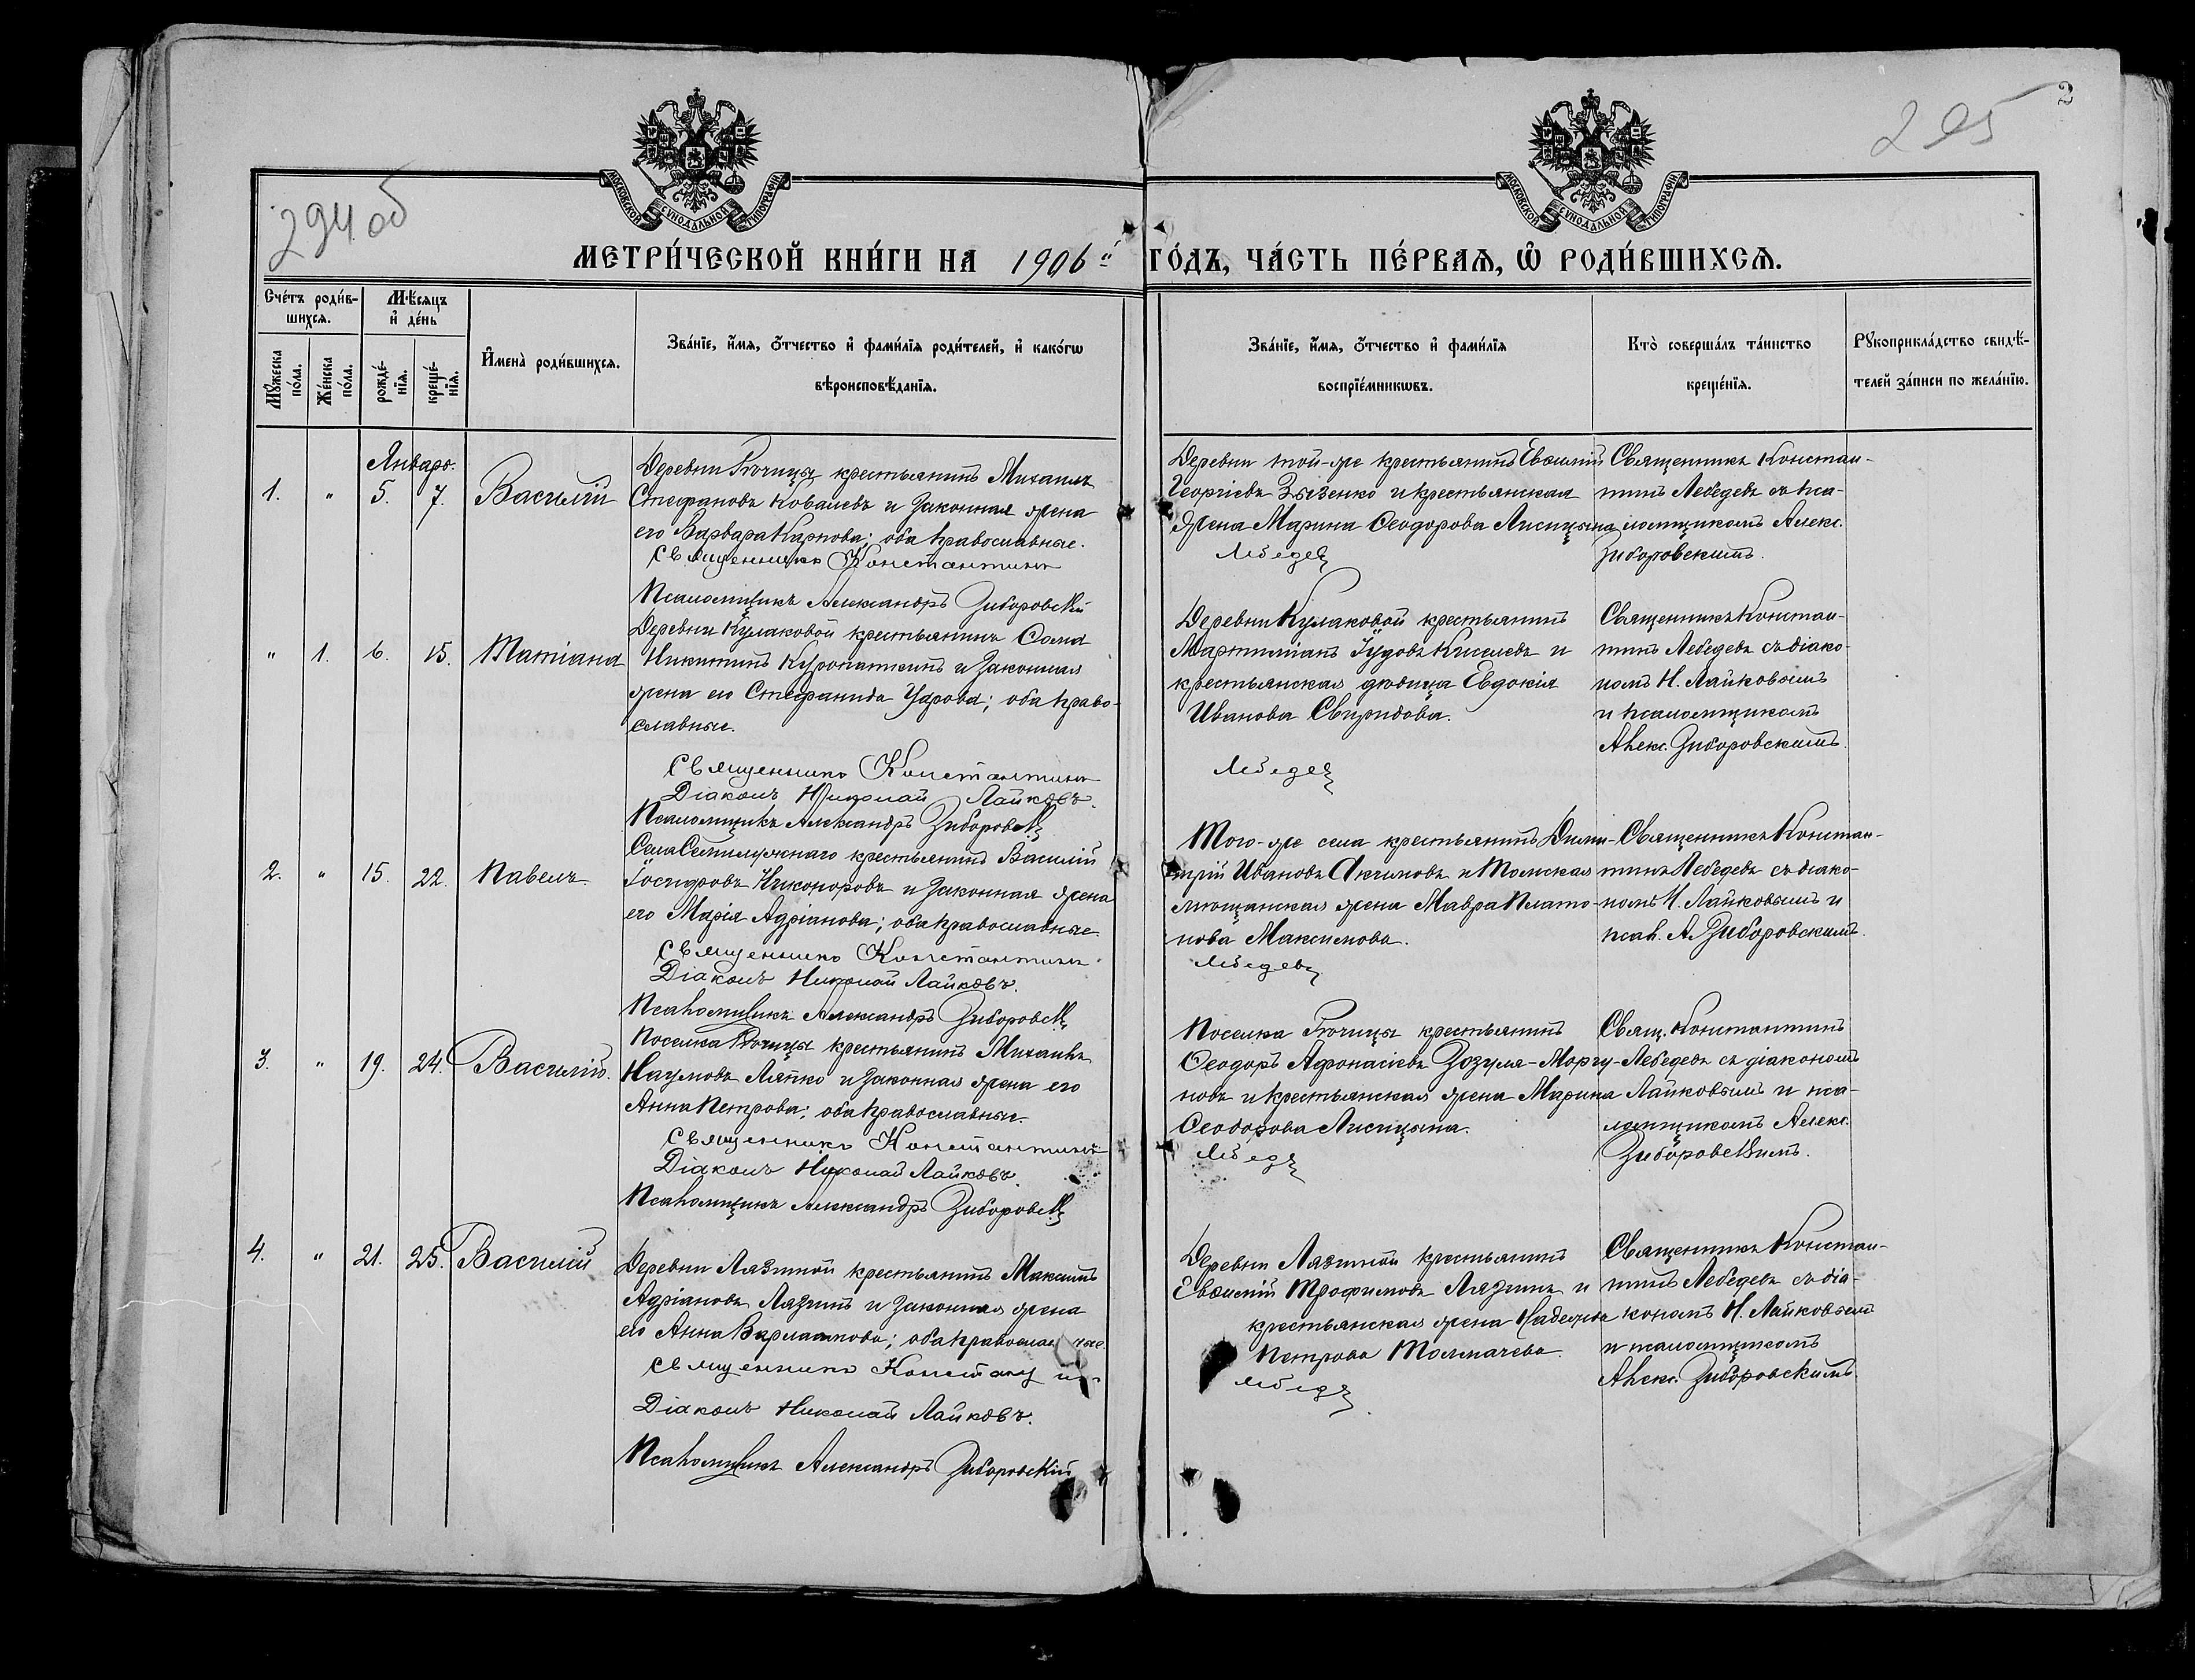 294 об
295
2
МОСКОВСКОЙ СѴНОДАЛЬНОЙ ТИПОГРАФІИ
МОСКОВСКОЙ СѴНОДАЛЬНОЙ ТИПОГРАФІИ
МЕТРИ́ЧЕСКОЙ КНИ́ГИ НА 1906й ГО́ДЪ, ЧА́СТЬ ПЕ́РВАѦ, Ѡ҆ РОДИ́ВШИХСѦ.
Сче́тъ роди́в-
шихсѧ.
Мѣ́сѧцъ
и҆ де́нь
Мꙋ́жеска
по́ла.
Же́нска
по́ла.
рожде́-
нїѧ.
креще́-
нїѧ.
И҆мена̀ роди́вшихсѧ.
Зва́нїе, и҆́мѧ, ѻ҆́тчество и҆ фами́лїѧ роди́телей, и҆ како́гѡ
вѣроисповѣ́данїѧ.
Зва́нїе, и҆́мѧ, ѻ҆́тчество и҆ фами́лїѧ
воспрїе́мникѡвъ.
Кто̀ соверша́лъ та́инство
креще́нїѧ.
Рꙋкоприкла́дство свидѣ́-
телей за́писи по жела́нїю.
Январь.
1. " 5. 7. Василій
Деревни крестьянинъ Михаилъ
Стефановъ Ковалевъ и законная жена
его Варвара Карпова; оба православные.
Священникъ Константинъ Лебедев
Псаломщикъ Александръ Зиборовскій
Деревни той-же крестьянинъ Евѳимій
Георгіевъ Зызенко и крестьянская
жена Марина Ѳеодорова Лисицына
Священникъ Констан-
тинъ Лебедевъ съ пса-
ломщикомъ Алекс.
Зиборовскимъ.
" 1. 6. 15. Татіана
Деревни Кулаковой крестьянинъ
Никитинъ Куропаткинъ и законная
жена его Стефанида; оба право-
славные.
Священникъ Константинъ Лебедев
Діаконъ Николай Лайковъ.
Псаломщикъ Александръ Зиборовскій
Деревни Кулаковой крестьянинъ
Мартиніанъ Іудовъ Киселевъ и
крестьянская дѣвица Евдокія
Иванова Свиридова.
Священникъ Констан-
тинъ Лебедевъ съ діако-
номъ Н. Лайковымъ
и псаломщикомъ
Алекс. Зиборовскимъ.
2. " 15. 22. Павелъ.
Села Семилужнаго крестьянинъ Василій
Іосифовъ Никоноровъ и законная жена
его Марія Адріанова; оба православные.
Священникъ Константинъ Лебедевъ
Діаконъ Николай Лайковъ.
Псаломщикъ Александръ Зиборовскій
Того-же села крестьянинъ Дими-
трій Ивановъ Акимовъ и Томская
мѣщанская жена Мавра Плато-
нова Максимова.
Священникъ Констан-
тинъ Лебедевъ съ діако-
номъ Н. Лайковымъ и
псал. А. Зиборовскимъ.
3. " 19. 24. Василій.
Поселка крестьянинъ Михаилъ
Наумовъ Ляпко и законная жена его
Анна Петрова; оба православные.
Священникъ Константинъ Лебедъ
Діаконъ Николай Лайковъ.
Псаломщикъ Александръ Зиборовскій
Поселка крестьянинъ
Ѳеодоръ Аѳонасіевъ Зозуля-Моргу-
новъ и крестьянская жена Марина
Ѳеодорова Лисицына.
Свящ. Константинъ
Лебедевъ съ діакономъ
Лайковымъ и пса-
ломщикомъ Алекс.
Зиборовскимъ.
4. " 21. 25. Василій
Деревни Лязгиной крестьянинъ Максимъ
Адріановъ Лязгинъ и законная жена
его Анна Варлаамова; оба православные.
Священникъ Константин Лебедъ
Діаконъ Николай Лайковъ.
Псаломщикъ Александръ Зиборовскій
Деревни Лязгиной крестьянинъ
Евѳимій Трофимовъ Лязгинъ и
крестьянская жена Надежда
Петрова Толмачева.
Священникъ Констан-
тинъ Лебедевъ съ діа-
кономъ Н. Лайковымъ
и псаломщикомъ
Алекс. Зиборовскимъ